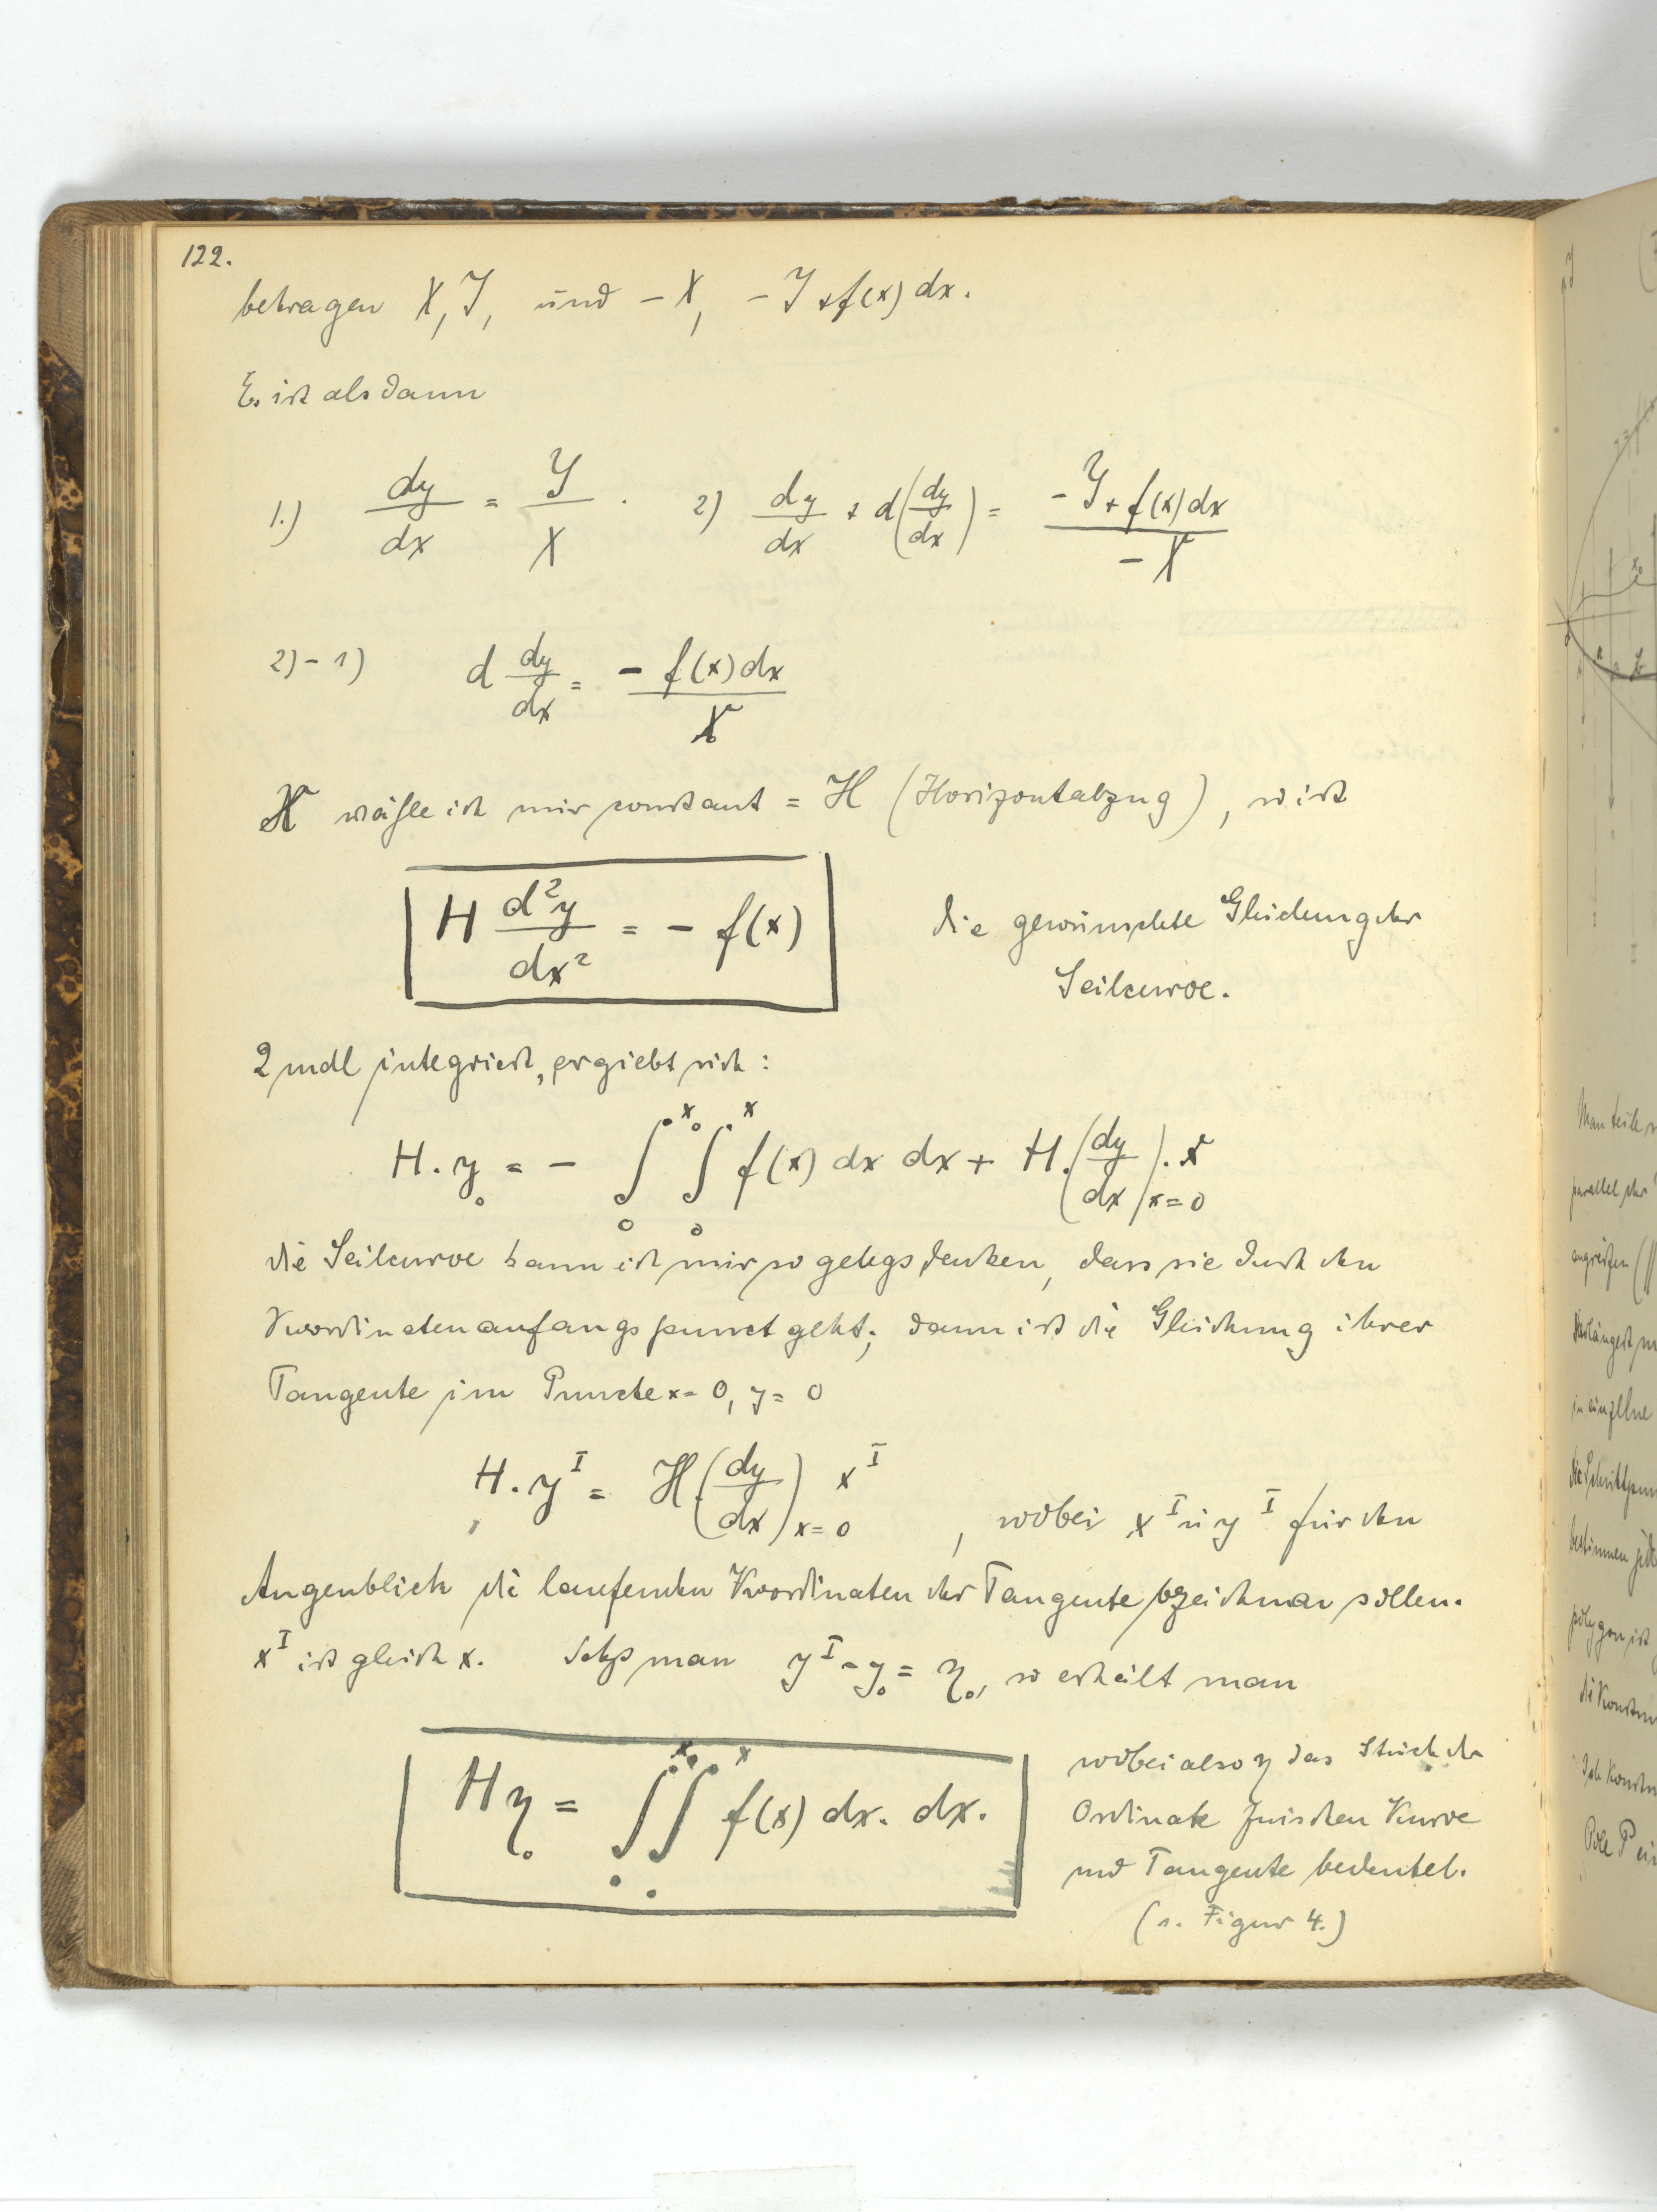 122.
betragen X, Y, und - X, - Y + f(x) dx.
Es ist alsdann
1.) dy/dx = Y/X . 2) dy/dx + d(dy/dx) = (-Y + f(x) dx)/(-X)
2) - 1) d dy/dx = - f(x) dx / X
X wähle ich mir constant = H (Horizontalzug), so ist
H d²y/dx² = - f(x) die gewünschte Gleichung der
Seilcurve.
2 mal integriert, ergiebt sich:
H. y₀ = - ∫₀^x₀ ∫₀^x f(x) dx dx + H. (dy/dx)x=0 . x
die Seilcurve kann ich mir so gelegt denken, dass sie durch den
Koordinatenanfangspunct geht; dann ist die Gleichung ihrer
Tangente im Puncte x = 0, y = 0
H. y^I = H (dy/dx)x=0 x^I , wobei x^I u y^I für den
Augenblick die laufenden Koordinaten der Tangente bezeichnen sollen.
x^I ist gleich x. Setzt man y^I - y₀ = η₀, so erhält man
Hη₀ = ∫₀^x₀ ∫₀^x f(x) dx. dx. wobei also η das Stück der
Ordinate zwischen Kurve
und Tangente bedeutet.
(s. Figur 4.)
Man teile
parallel der
angreifen
verlängert
in einzelne
die Schnittpun
bestimmen
polygon ist
die Konstru
Pole P